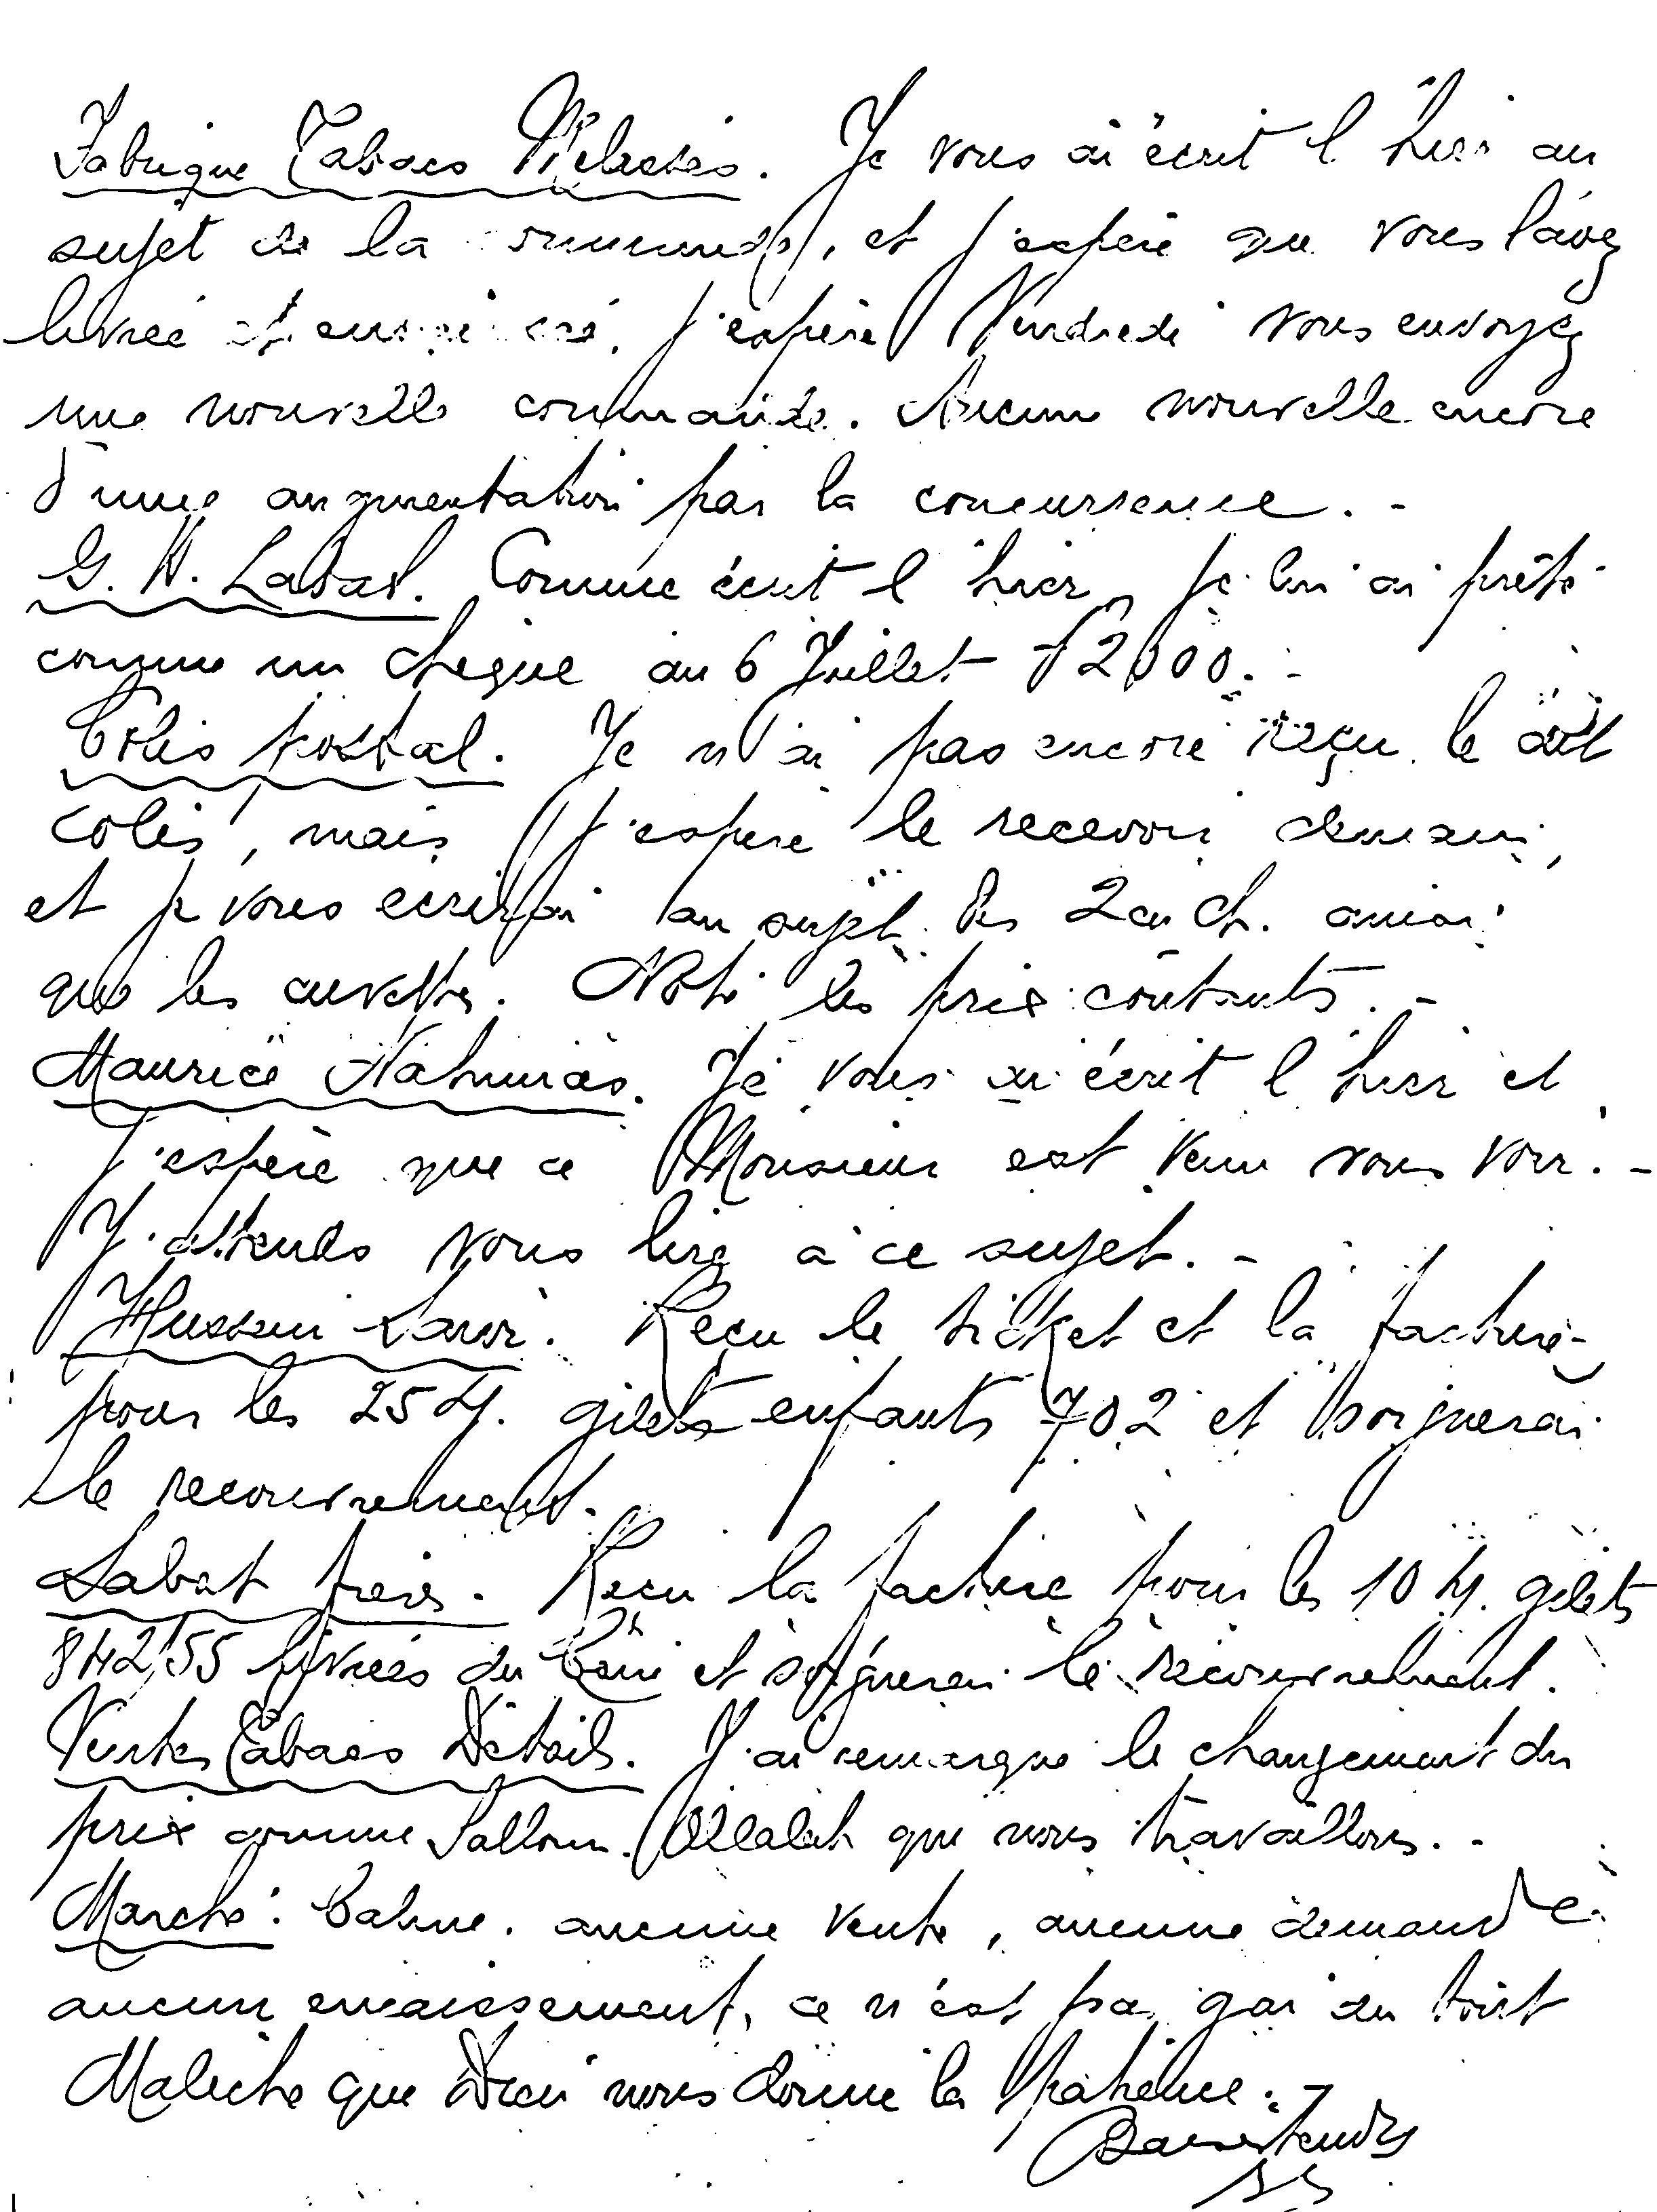 Fabrique Tabacs. Je vous ai écrit l'hier au
sujet de la commande, et j'espère que vous l'avez
livrée et. j'espère Vendredi vous envoyez
une nouvelle commande. Aucune nouvelle encore
d'une augmentation par la concurrence. -
G. H. Labat. Comme écrit l'hier, je lui ai prêté
comme un chèque au 6 Juillet £ 2000. -
Colis postal. Je n'ai pas encore reçu le dit
colis, mais j'espère le recevoir demain,
et je vous ecrirai au sujet des ainsi
que les cuvettes. Noté les prix coûtants. -
Maurice Nahmias. Je vous ai écrit l'hier et
j'espère que ce Monsieur est venu vous voir. -
J'attends vous lire à ce sujet. -
Hussein. Reçu le ticket et la facture
pour les 25 gilets enfants 702 et soignerai
le recouvrement.
Labat frères. Reçu la facture pour les 10 gilets
842/55 livrées du et soignerai le recouvrement.
Ventes Tabacs Détails. J'ai remarqué le changement du
prix comme Salloum. que nous travaillons. -
Marché: Calme. aucune vente, aucune demande
aucun encaissement, ce n'est pas gai du tout
Maleche que Dieu nous donne la patience. -